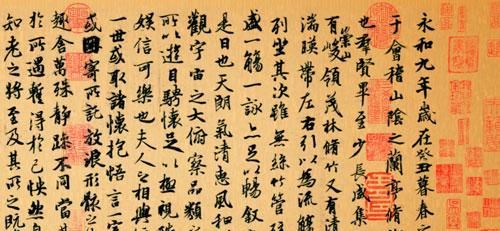 永和九年歲在癸丑暮春
于會稽山陰之蘭亭脩
也羣賢畢至少長咸集
有崇山峻領茂林脩竹又有清
湍暎帶左右引以為流觴
列坐其次雖無絲竹管
盛一觴一詠亦足以暢敘
是日也天朗氣清惠風和
觀宇宙之大俯察品類
所以遊目騁懷足以極視
娛信可樂也夫人之相與
一世或取諸懷抱悟言一
或因寄所託放浪形骸之
趣舍萬殊靜躁不同當其
於所遇蹔得於己怏然自
知老之將至及其所之既